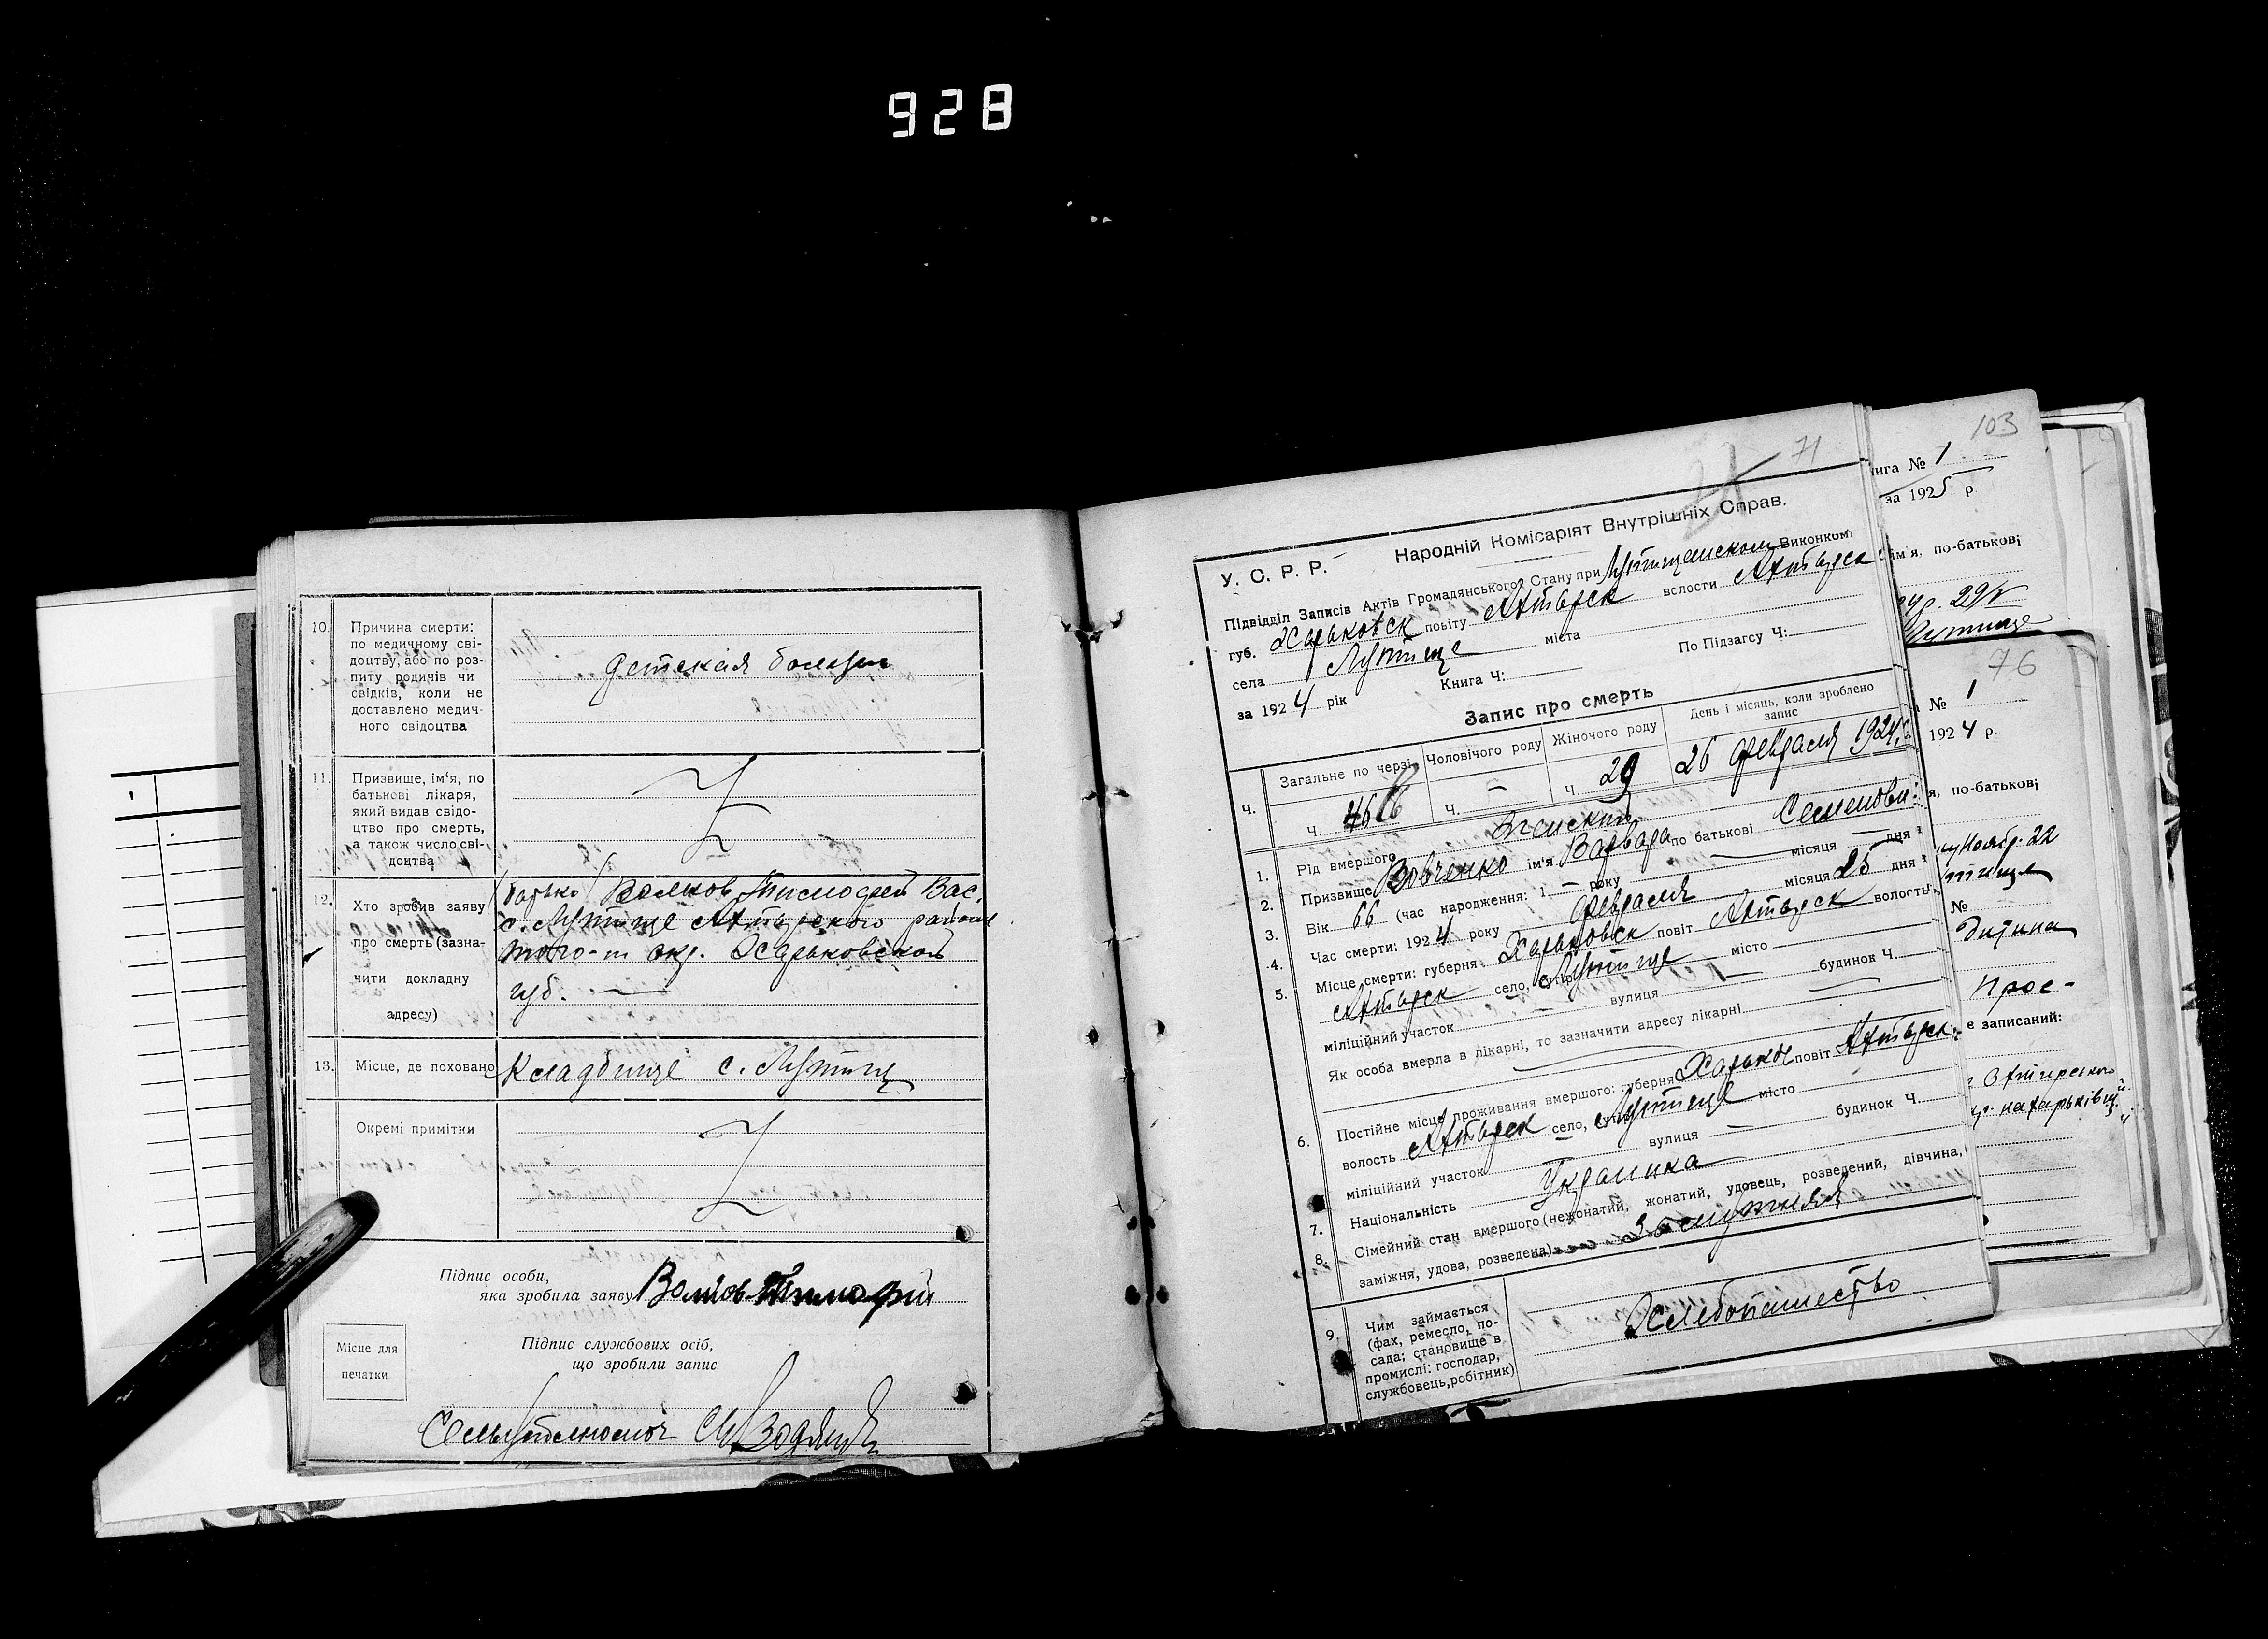 928
10.
Причина смерти:
по медичному сві-
доцтву, або по роз-
питу родичів чи
свідків, коли не
доставлено медич-
ного свідоцтва
детская болезнь
11.
Призвище, ім'я, по
батькові лікаря,
який видав свідо-
цтво про смерть,
а також число сві-
доцтва
12.
Хто зробив заяву
про смерть (зазна-
чити докладну
адресу)
(батько) Волков Тимофей Вас.
с. Лутище Ахтырского района
того-ж окр. Харьковской
губ.
13.
Місце, де поховано
Кладбище с. Лутищ
Окремі примітки
Підпис особи,
яка зробила заяву
Волков Тимофій
Місце для
печатки
Підпис службових осіб,
що зробили запис
71
У. С. Р. Р.
Народній Комісаріят Внутрішніх Справ.
Підвідділ Записів Актів Громадянського Стану при Лутищанском Виконком.
губ. Харьковск повіту Ахтырск волости Ахтырск
села Лутище міста
за 1924 рік Книга Ч: По Підзагсу Ч:
Запис про смерть
Ч.
Загальне по черзі
Чоловічого роду
Жіночого роду
День і місяць, коли зроблено
запис
ч. 46
ч. —
ч. 29
26 февраля 1924 г.
1. Рід вмершого Женский
2. Призвище Вовченко ім'я Варвара по батькові Семеновн.
3. Вік 66 (час народження: 1 — року — місяця — дня
4. Час смерти: 1924 року февраля місяця 25 дня
5. Місце смерти: губерня Харьковск повіт Ахтырск волость
Ахтырск село, хутір Лутище місто
міліційний участок вулиця — будинок Ч.
Як особа вмерла в лікарні, то зазначити адресу лікарні
6. Постійне місце проживання вмершого: губерня Харьков повіт Ахтырск
волость Ахтырск село, хутір Лутище місто
міліційний участок вулиця — будинок Ч.
7. Національність Украинка
8. Сімейний стан вмершого (нежонатий, жонатий, удовець, розведений, дівчина,
заміжня, удова, розведена) Замужняя
9.
Чим займається
(фах, ремесло, по-
сада; становище в
промислі: господар,
службовець, робітник)
Хлебопашество
103
нига № 1
за 1925 р.
ім'я, по-батькові
76
№ 1
1924 р.
я, по-батькові
Ноябр. 22
№
дитина
Прос-
е записаний: